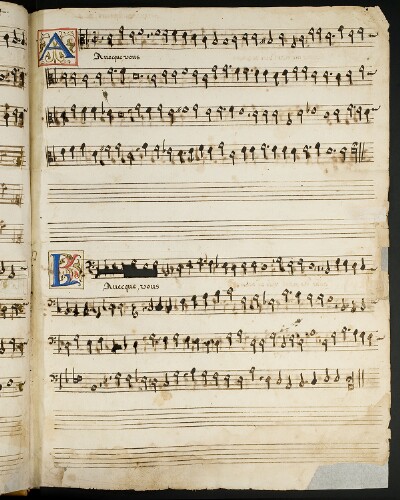 A
Auecque vous
Auecque, vous